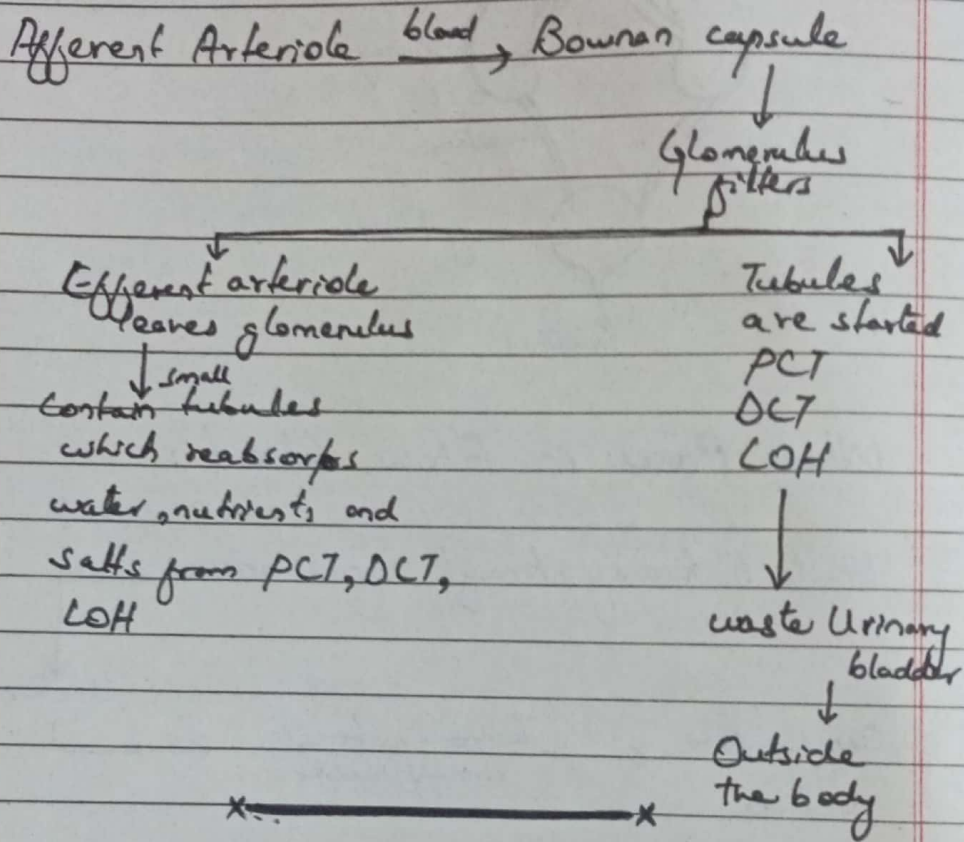 Afferent Arteriole blood Bowman capsule
Glomerulus
filters
Efferent arteriole
leaves glomerulus
small
contain tubules
which reabsorbs
water, nutrients and
salts from PCT, DCT,
LOH
Tubules
are started
PCT
DCT
LOH
waste Urinary
bladder
Outside
the body